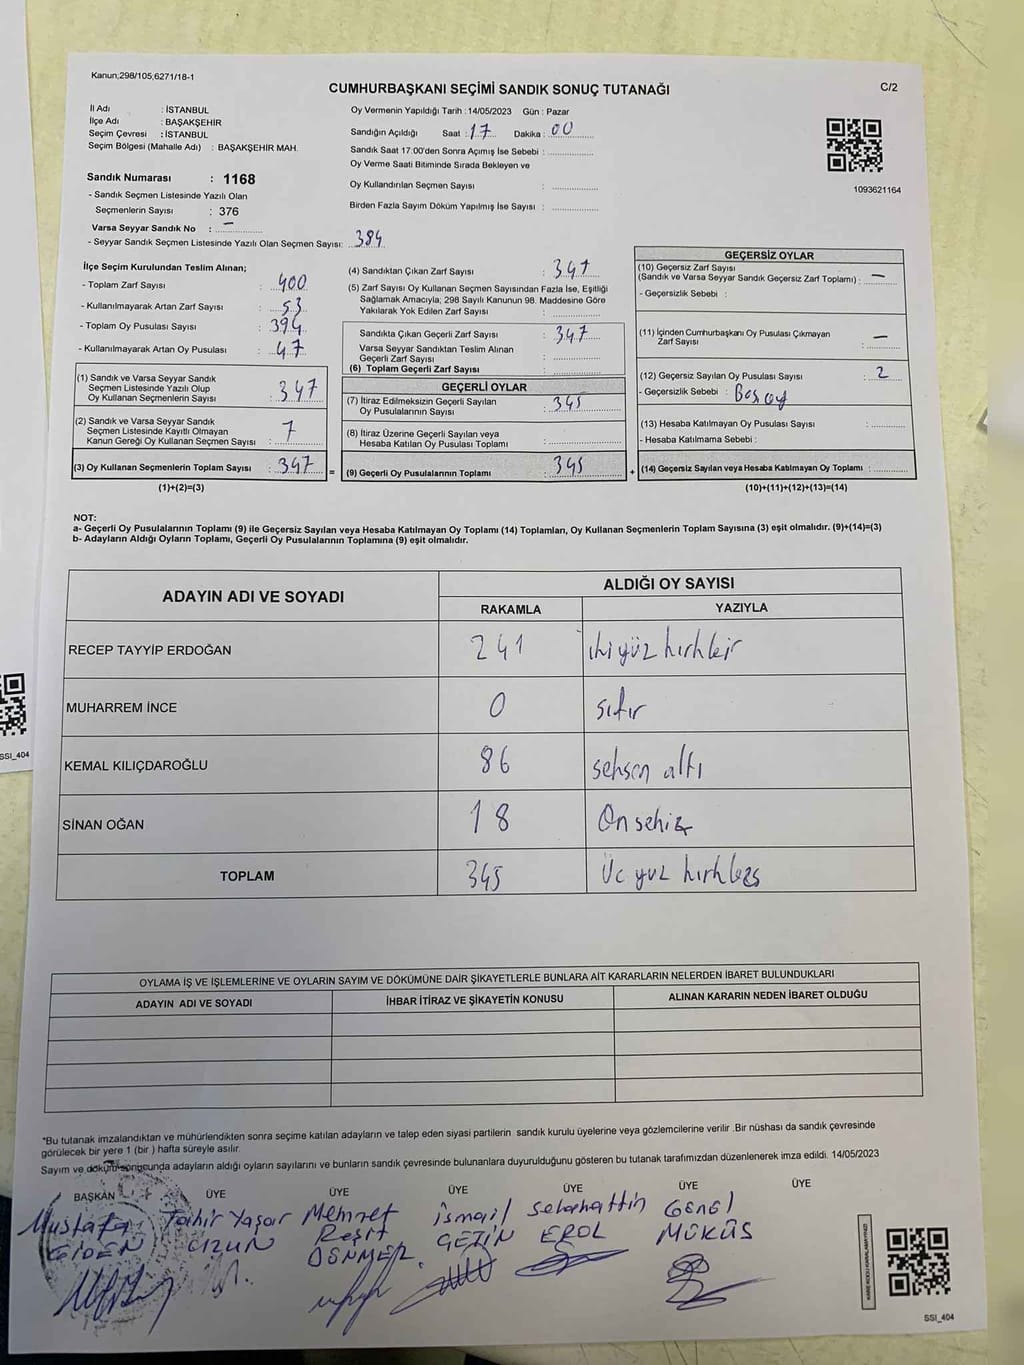 Kanun;298/105,6271/18-1
CUMHURBAŞKANI SEÇİMİ SANDIK SONUÇ TUTANAĞI
C/2
İl Adı : İSTANBUL
İlçe Adı : BAŞAKŞEHİR
Seçim Çevresi : İSTANBUL
Seçim Bölgesi (Mahalle Adı) : BAŞAKŞEHİR MAH.
Oy Vermenin Yapıldığı Tarih : 14/05/2023 Gün : Pazar
Sandığın Açıldığı Saat : 17 Dakika : 00
Sandık Saat 17:00'den Sonra Açımış İse Sebebi :
Oy Verme Saati Bitiminde Sırada Bekleyen ve
Oy Kullandırılan Seçmen Sayısı :
Birden Fazla Sayım Döküm Yapılmış İse Sayısı :
1093621164
Sandık Numarası : 1168
- Sandık Seçmen Listesinde Yazılı Olan
Seçmenlerin Sayısı : 376
Varsa Seyyar Sandık No : –
- Seyyar Sandık Seçmen Listesinde Yazılı Olan Seçmen Sayısı: 384
İlçe Seçim Kurulundan Teslim Alınan;
- Toplam Zarf Sayısı : 400
- Kullanılmayarak Artan Zarf Sayısı : 53
- Toplam Oy Pusulası Sayısı : 394
- Kullanılmayarak Artan Oy Pusulası : 47
(1) Sandık ve Varsa Seyyar Sandık
Seçmen Listesinde Yazılı Olup
Oy Kullanan Seçmenlerin Sayısı : 347
(2) Sandık ve Varsa Seyyar Sandık
Seçmen Listesinde Kayıtlı Olmayan
Kanun Gereği Oy Kullanan Seçmen Sayısı : 7
(3) Oy Kullanan Seçmenlerin Toplam Sayısı : 347
(1)+(2)=(3)
=
(4) Sandıktan Çıkan Zarf Sayısı : 347
(5) Zarf Sayısı Oy Kullanan Seçmen Sayısından Fazla İse, Eşitliği
Sağlamak Amacıyla; 298 Sayılı Kanunun 98. Maddesine Göre
Yakılarak Yok Edilen Zarf Sayısı :
Sandıkta Çıkan Geçerli Zarf Sayısı : 347
Varsa Seyyar Sandıktan Teslim Alınan
Geçerli Zarf Sayısı :
(6) Toplam Geçerli Zarf Sayısı :
GEÇERLİ OYLAR
(7) İtiraz Edilmeksizin Geçerli Sayılan
Oy Pusulalarının Sayısı : 345
(8) İtiraz Üzerine Geçerli Sayılan veya
Hesaba Katılan Oy Pusulası Toplamı :
(9) Geçerli Oy Pusulalarının Toplamı : 345
+
GEÇERSİZ OYLAR
(10) Geçersiz Zarf Sayısı
(Sandık ve Varsa Seyyar Sandık Geçersiz Zarf Toplamı) : –
- Geçersizlik Sebebi :
(11) İçinden Cumhurbaşkanı Oy Pusulası Çıkmayan
Zarf Sayısı : –
(12) Geçersiz Sayılan Oy Pusulası Sayısı : 2
- Geçersizlik Sebebi : Boş oy
(13) Hesaba Katılmayan Oy Pusulası Sayısı :
- Hesaba Katılmama Sebebi :
(14) Geçersiz Sayılan veya Hesaba Katılmayan Oy Toplamı :
(10)+(11)+(12)+(13)=(14)
NOT:
a- Geçerli Oy Pusulalarının Toplamı (9) ile Geçersiz Sayılan veya Hesaba Katılmayan Oy Toplamı (14) Toplamları, Oy Kullanan Seçmenlerin Toplam Sayısına (3) eşit olmalıdır. (9)+(14)=(3)
b- Adayların Aldığı Oyların Toplamı, Geçerli Oy Pusulalarının Toplamına (9) eşit olmalıdır.
ADAYIN ADI VE SOYADI
ALDIĞI OY SAYISI
RAKAMLA YAZIYLA
RECEP TAYYİP ERDOĞAN 241 ikiyüz kırkbir
MUHARREM İNCE 0 sıfır
KEMAL KILIÇDAROĞLU 86 seksen altı
SİNAN OĞAN 18 On sekiz
TOPLAM 345 Üç yüz kırkbeş
OYLAMA İŞ VE İŞLEMLERİNE VE OYLARIN SAYIM VE DÖKÜMÜNE DAİR ŞİKAYETLERLE BUNLARA AİT KARARLARIN NELERDEN İBARET BULUNDUKLARI
ADAYIN ADI VE SOYADI İHBAR İTİRAZ VE ŞİKAYETİN KONUSU ALINAN KARARIN NEDEN İBARET OLDUĞU
*Bu tutanak imzalandıktan ve mühürlendikten sonra seçime katılan adayların ve talep eden siyasi partilerin sandık kurulu üyelerine veya gözlemcilerine verilir .Bir nüshası da sandık çevresinde
görülecek bir yere 1 (bir ) hafta süreyle asılır.
Sayım ve dökün sonucunda adayların aldığı oyların sayılarını ve bunların sandık çevresinde bulunanlara duyurulduğunu gösteren bu tutanak tarafımızdan düzenlenerek imza edildi. 14/05/2023
BAŞKAN ÜYE ÜYE ÜYE ÜYE ÜYE ÜYE
Mustafa Tahir Yaşar Mehmet İsmail Selahattin Genel
GİDEN UZUN Reşit GEZİN EROL MÜKÜS
DÖNMEZ
SSI_404
SSI_404